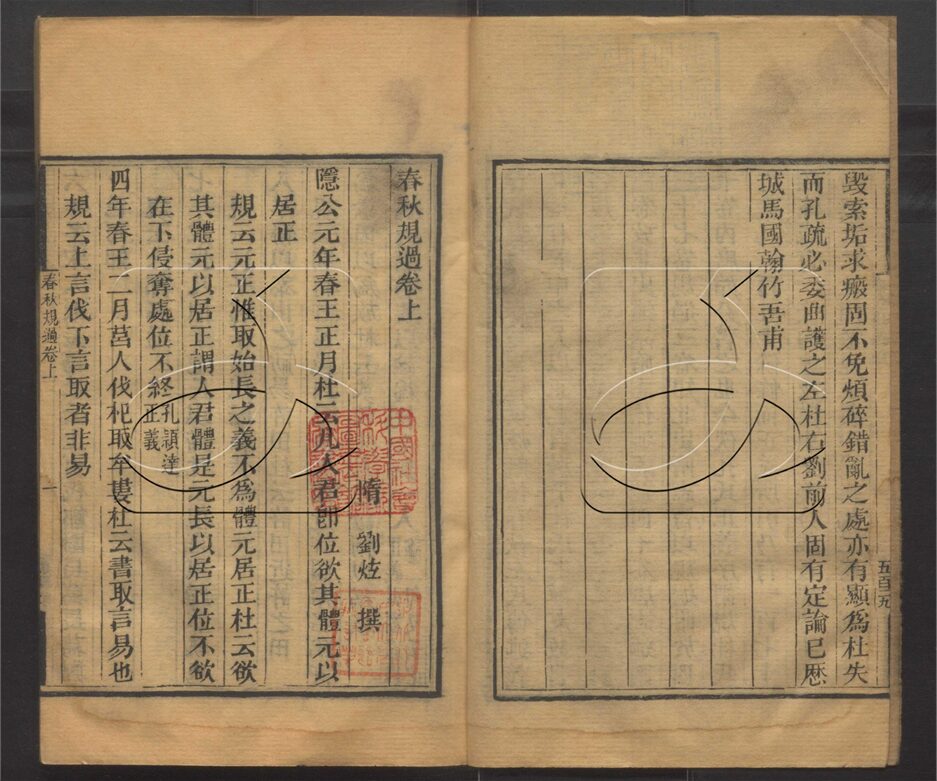 毁索垢求瘢固不免煩碎錯亂之處亦有顯為杜失
而孔疏必委曲護之左杜右劉前人固有定論已歷
城馬國翰竹吾甫
五百九
春秋規過卷上
隋 劉炫 撰
隱公元年春王正月杜云凡人君即位欲其體元以
居正
規云元正惟取始長之義不為體元居正杜云欲
其體元以居正謂人君體是元長以居正位不欲
在下侵奪處位不終孔頴達
正義
四年春王二月莒人伐杞取牟婁杜云書取言易也
規云上言伐下言取者非易
春秋規過卷上
一